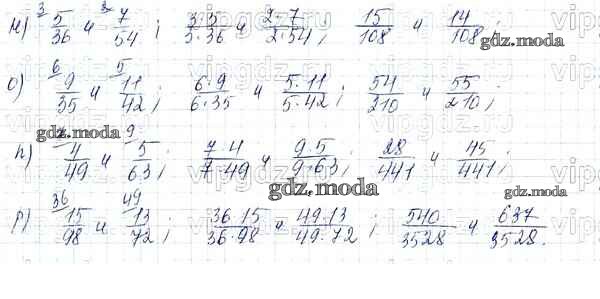 н) ³ 5/36 и ² 7/54 ; 3·5/3·36 и 2·7/2·54 ; 15/108 и 14/108 ;
gdz.moda
о) ⁶ 9/35 и ⁵ 11/42 ; 6·9/6·35 и 5·11/5·42 ; 54/210 и 55/210 ;
gdz.moda
п) 4/49 и ⁹ 5/63 ; 7·4/7·49 и 9·5/9·63 ; 28/441 и 45/441 ;
gdz.moda
р) ³⁶ 15/98 и ⁴⁹ 13/72 ; 36·15/36·98 и 49·13/49·72 ; 540/3528 и 637/3528 .